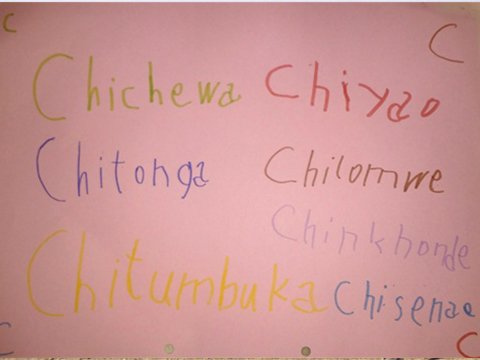 C
C
Chichewa Chiyao
Chitonga Chilomwe
Chinkhonde
Chitumbuka Chisenae
C
C